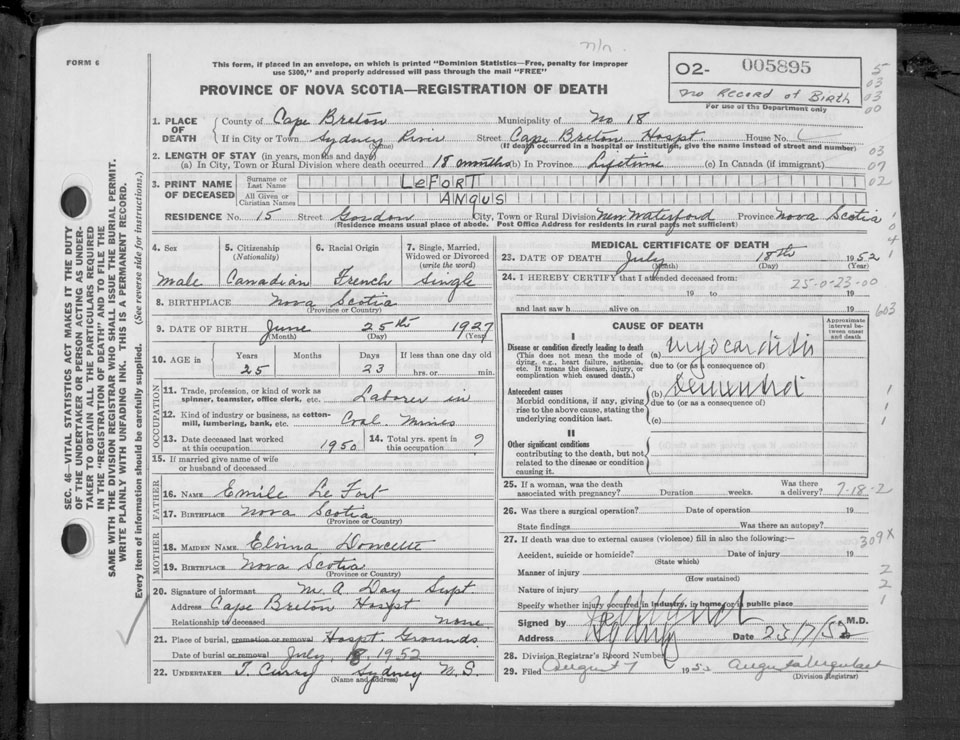 n/n.
FORM 6
This form, if placed in an envelope, on which is printed "Dominion Statistics—Free, penalty for improper
use $300," and properly addressed will pass through the mail "FREE"
PROVINCE OF NOVA SCOTIA—REGISTRATION OF DEATH
02- 005895
No Record of Birth
For use of the Department only
5
03
03
00
03
07
02
1. PLACE OF DEATH
County of Cape Breton Municipality of No 18
If in City or Town Sydney River Street Cape Breton Hospt. House No.
(Name) (If death occurred in a hospital or institution, give the name instead of street and number)
2. LENGTH OF STAY (in years, months and days)
(a) In City, Town or Rural Division where death occurred 18 months (b) In Province Lifetime (c) In Canada (if immigrant)
3. PRINT NAME OF DECEASED
Surname or Last Name LeFORT
All Given or Christian Names ANGUS
RESIDENCE No. 15 Street Gordon City, Town or Rural Division New Waterford Province Nova Scotia
(Residence means usual place of abode. Post Office Address for residents in rural parts not sufficient)
4. Sex
Male
5. Citizenship (Nationality)
Canadian
6. Racial Origin
French
7. Single, Married, Widowed or Divorced (write the word)
Single
8. BIRTHPLACE Nova Scotia
(Province or Country)
9. DATE OF BIRTH June 25th 1927
(Month) (Day) (Year)
10. AGE in Years Months Days If less than one day old
25 23 hrs. or min.
OCCUPATION
11. Trade, profession, or kind of work as spinner, teamster, office clerk, etc. Laborer in
12. Kind of industry or business, as cotton-mill, lumbering, bank, etc. Coal Mines
13. Date deceased last worked at this occupation 1950
14. Total yrs. spent in this occupation ?
15. If married give name of wife or husband of deceased
FATHER
16. NAME Emile Le Fort
17. BIRTHPLACE Nova Scotia
(Province or Country)
MOTHER
18. MAIDEN NAME Elvina Doucette
19. BIRTHPLACE Nova Scotia
(Province or Country)
20. Signature of informant M. A. Day Supt.
Address Cape Breton Hospt
Relationship to deceased none
21. Place of burial, cremation or removal Hospt Grounds
Date of burial or removal July, 18, 1952
22. UNDERTAKER T. Curry Sydney N.S.
(Name and address)
MEDICAL CERTIFICATE OF DEATH
23. DATE OF DEATH July 18th 1952
(Month) (Day) (Year)
24. I HEREBY CERTIFY that I attended deceased from:
25-0-23-00
19 to 19
and last saw h alive on 19
603
CAUSE OF DEATH
Approximate interval between onset and death
I
Disease or condition directly leading to death
(This does not mean the mode of dying, e.g., heart failure, asthenia, etc. It means the disease, injury, or complication which caused death.)
(a) Myocarditis
due to (or as a consequence of)
Antecedent causes
Morbid conditions, if any, giving rise to the above cause, stating the underlying condition last.
(b)
due to (or as a consequence of)
(c)
II
Other significant conditions
contributing to the death, but not related to the disease or condition causing it.
25. If a woman, was the death associated with pregnancy? Duration weeks. Was there a delivery? 7-18-2
26. Was there a surgical operation? Date of operation 19
State findings Was there an autopsy?
309X
27. If death was due to external causes (violence) fill in also the following:—
Accident, suicide or homicide? Date of injury 19
(State which)
Manner of injury
(How sustained)
Nature of injury
Specify whether injury occurred in industry, in home or in public place
Signed by M.D.
Address Sydney Date 23/7/52
28. Division Registrar's Record Number
29. Filed August 7 1952
(Division Registrar)
SEC. 46—VITAL STATISTICS ACT MAKES IT THE DUTY
OF THE UNDERTAKER OR PERSON ACTING AS UNDER-
TAKER TO OBTAIN ALL THE PARTICULARS REQUIRED
IN THE "REGISTRATION OF DEATH" AND TO FILE THE
SAME WITH THE DIVISION REGISTRAR WHO SHALL ISSUE THE BURIAL PERMIT.
WRITE PLAINLY WITH UNFADING INK. THIS IS A PERMANENT RECORD.
Every item of information should be carefully supplied. (See reverse side for instructions.)